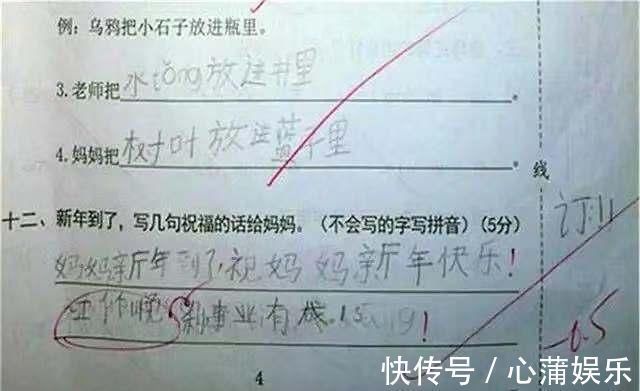 例：乌鸦把小石子放进瓶里。
3.老师把水tǒng放进井里。
4.妈妈把树叶放进蓝子里。
线
十二、新年到了，写几句祝福的话给妈妈。（不会写的字写拼音）（5分）
妈妈新年到了，祝妈妈新年快乐！
事业有！
订
-0.5
4
快传号 / 心蒲娱乐